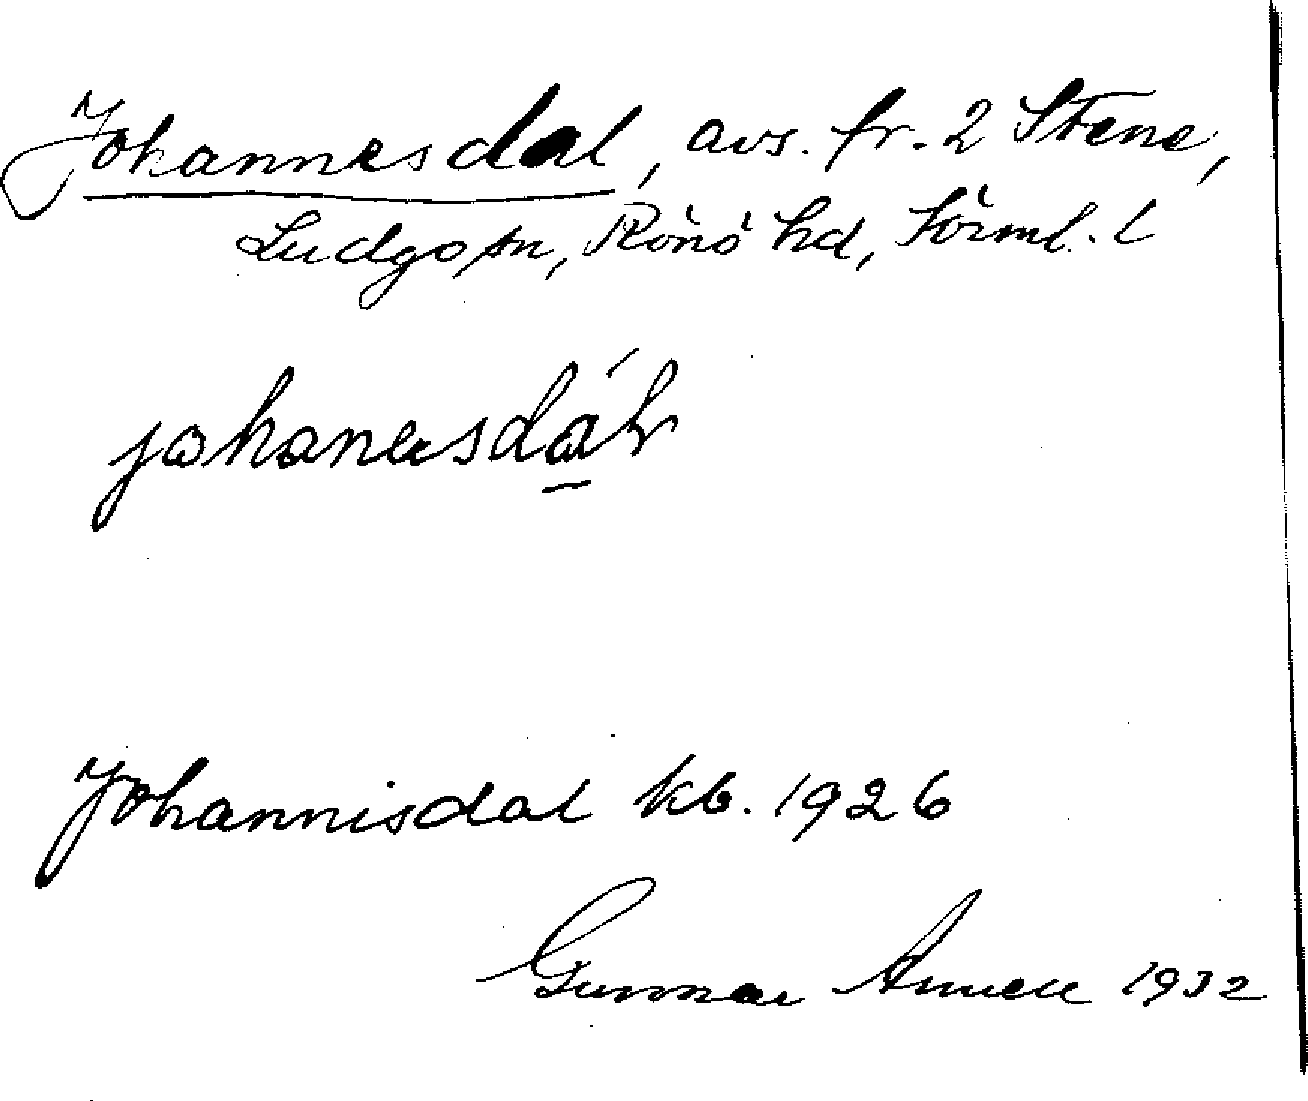 Johannesdal, avs. fr. 2 Stene,
Ludgo sn, Rönö hd, Sörml. l
johanesdáł
Johannisdal kb. 1926
Gunnar Annell 1932